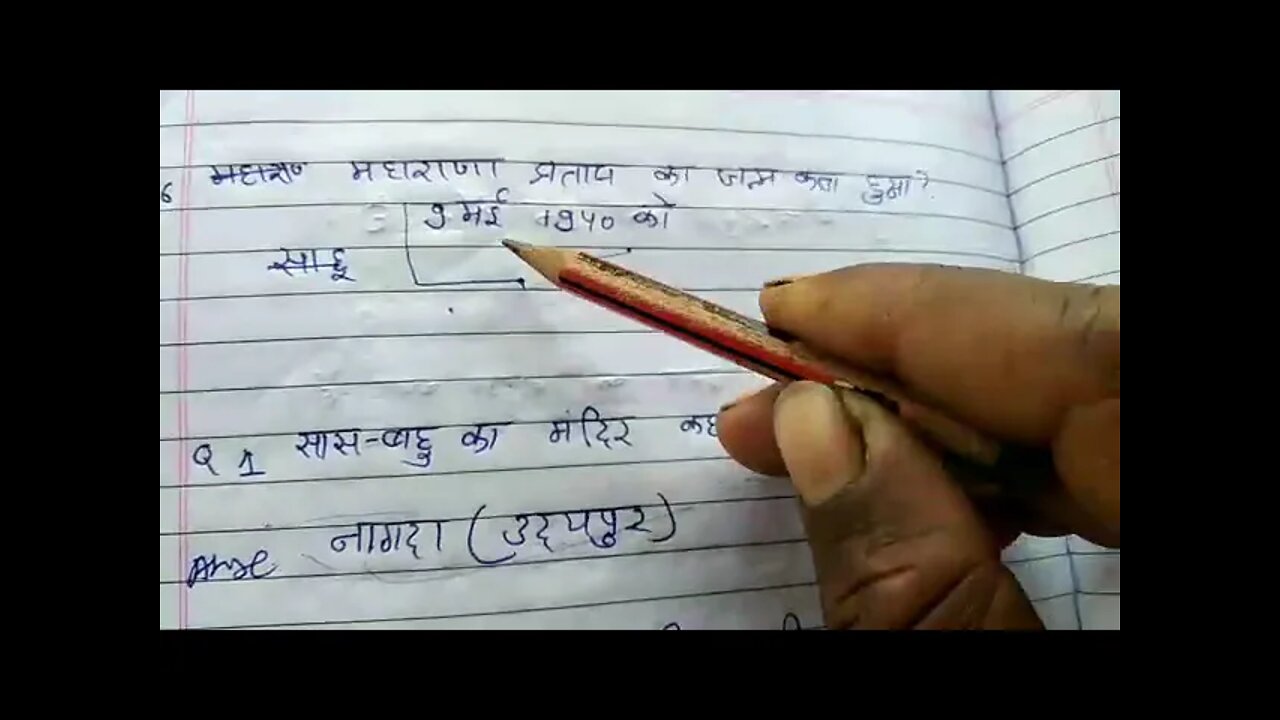 6 महाराण महाराणा प्रताप का जन्म कब हुआ?
9 मई 1540 को
साहू
Q 1 सास-बहु का मंदिर कह
Ans नागदा (उदयपुर)